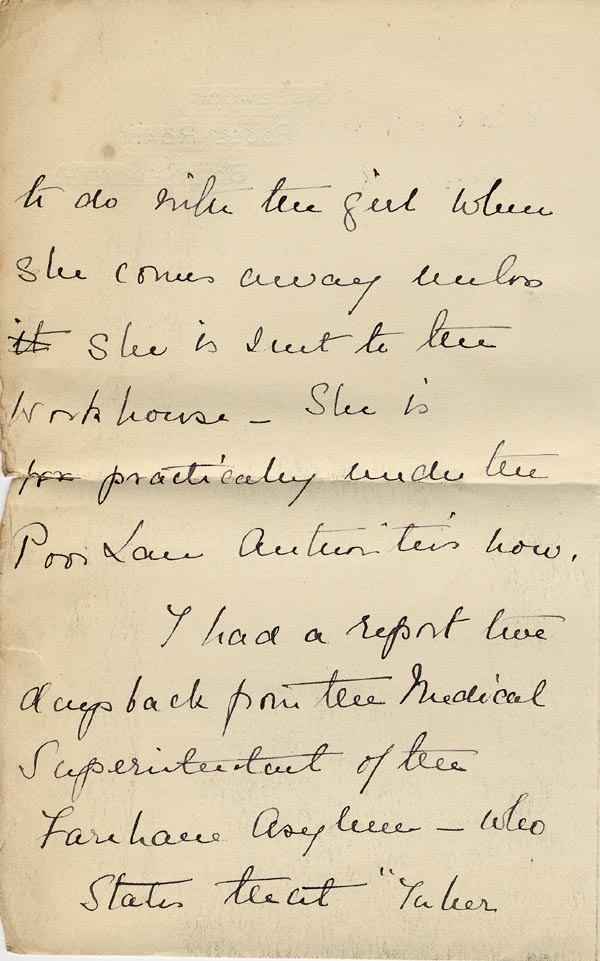 to do with the girl when
she comes away unless
it she is sent to the
Workhouse – She is
for practically under the
Poor Law Authorities now.
I had a report two
days back from the Medical
Superintendent of the
Fareham Asylum – who
States that "